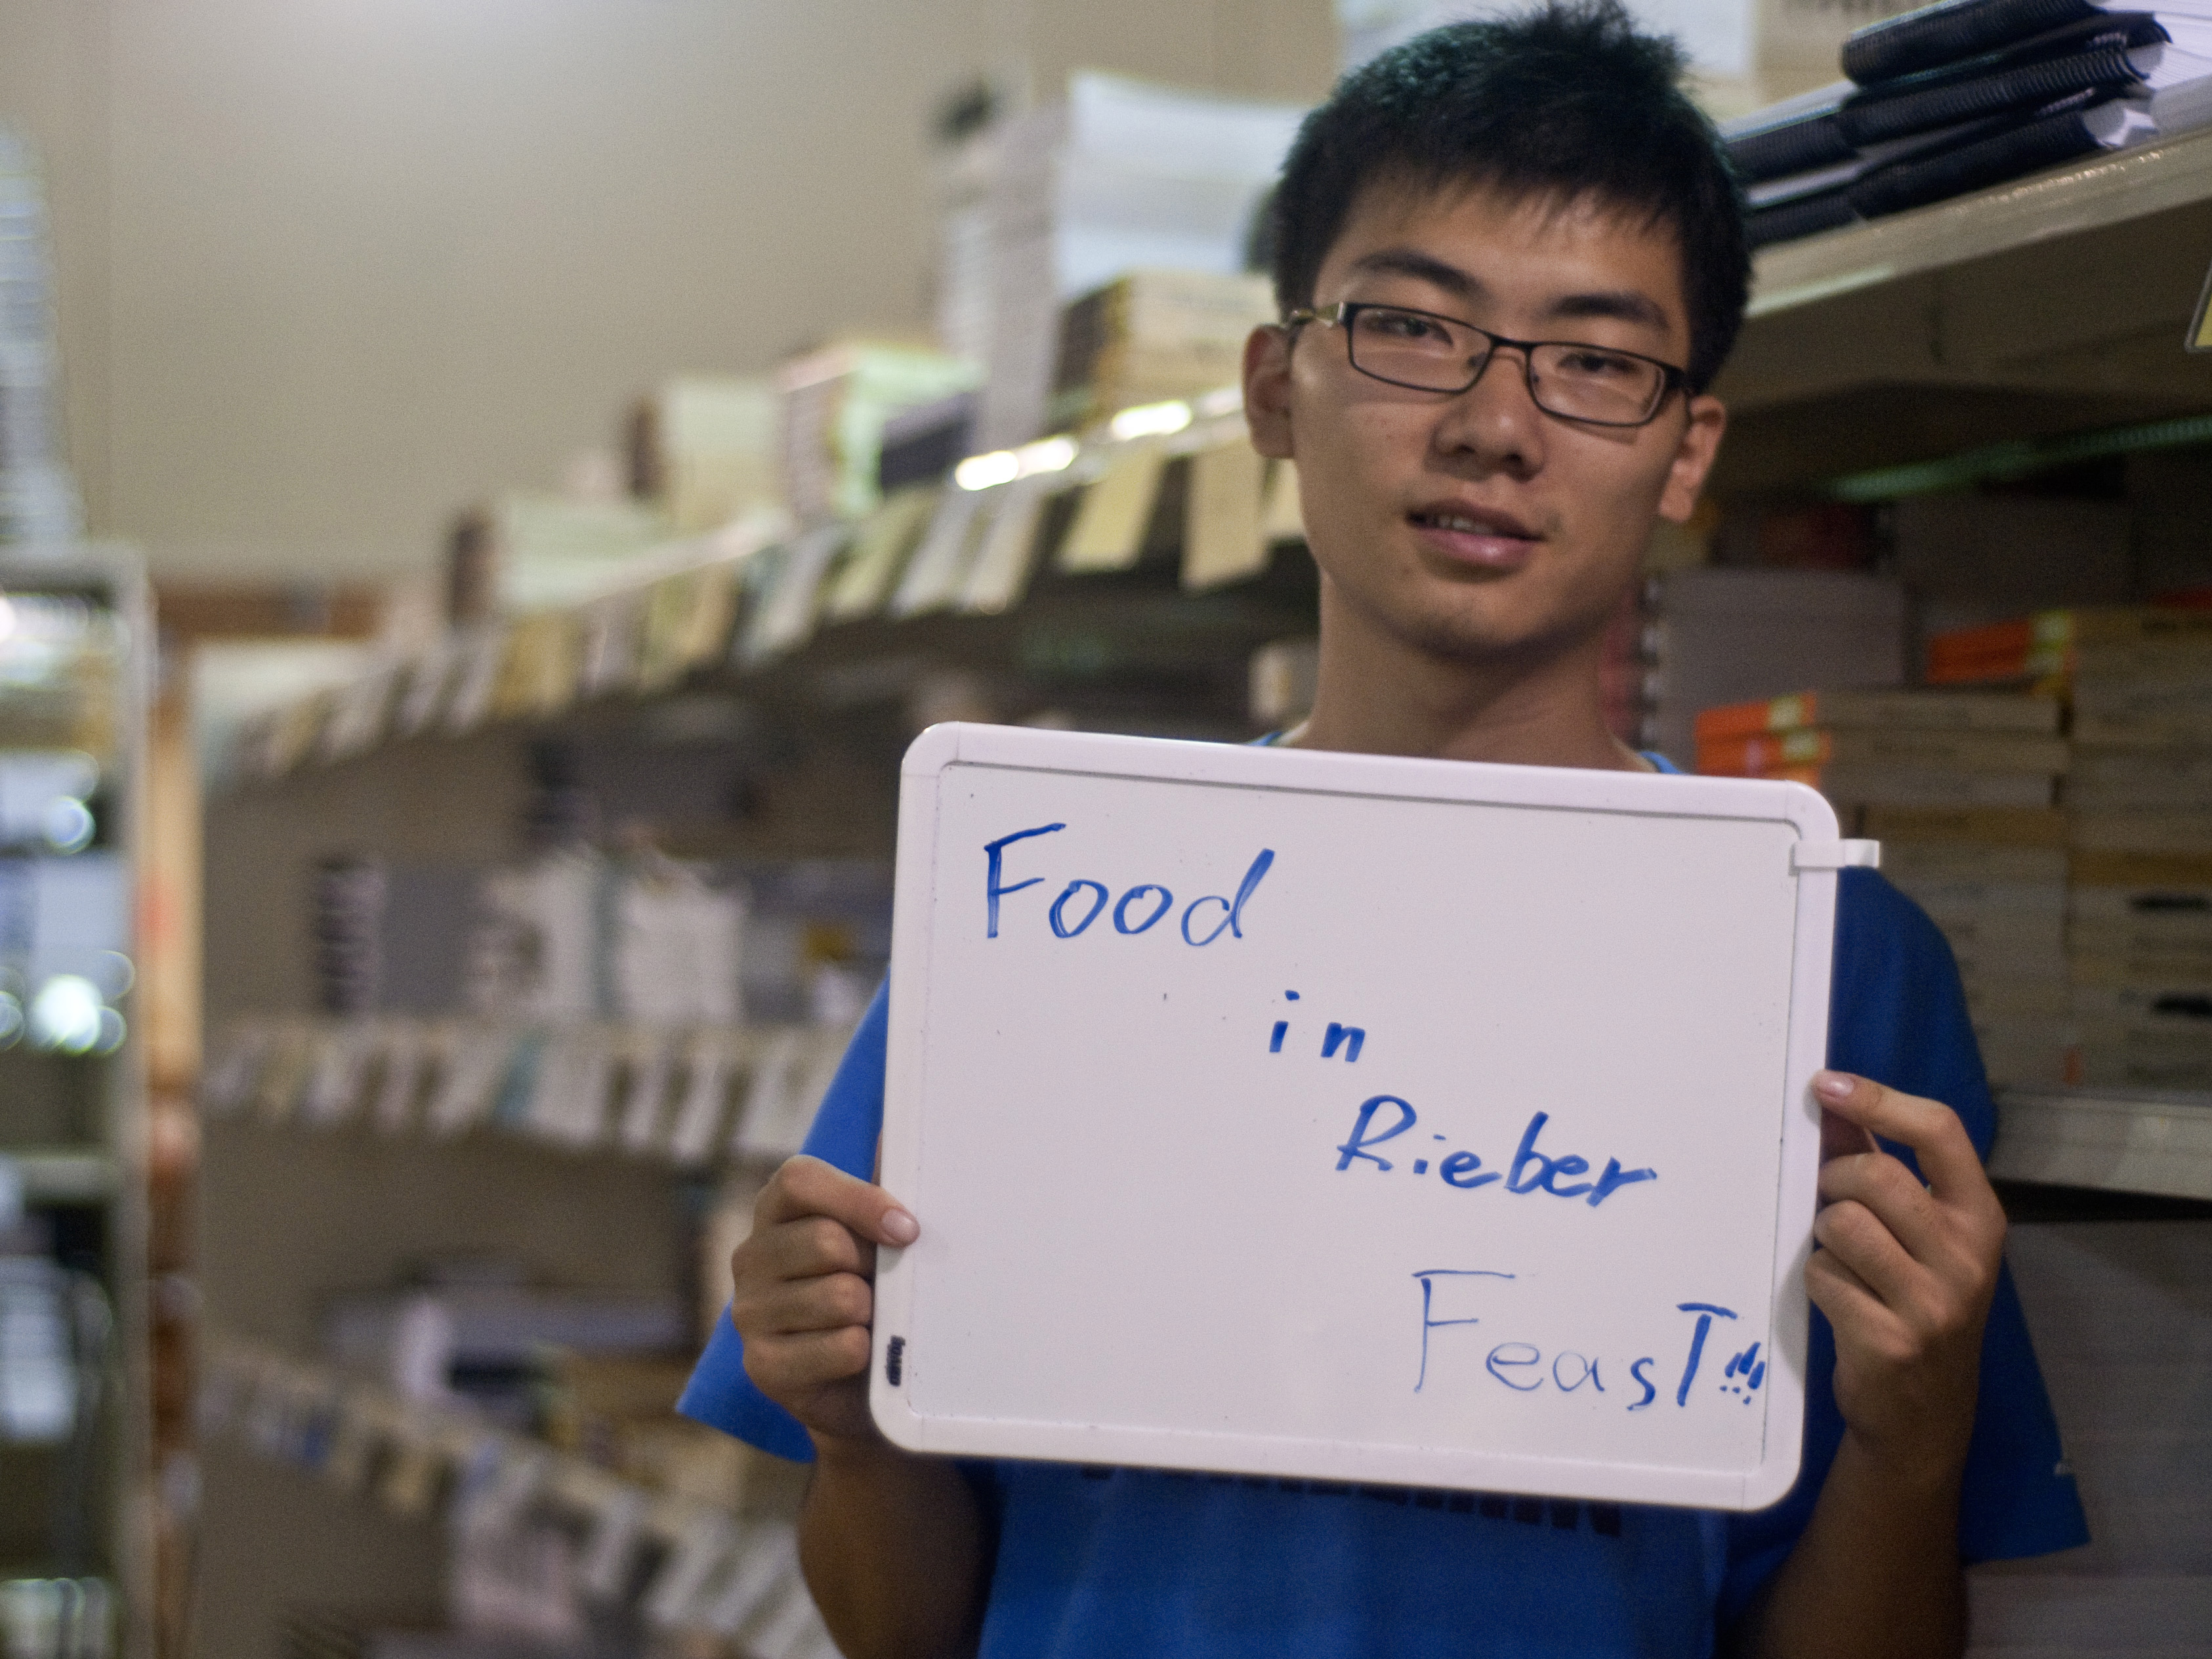 Food
in
Rieber
FeasT!!!